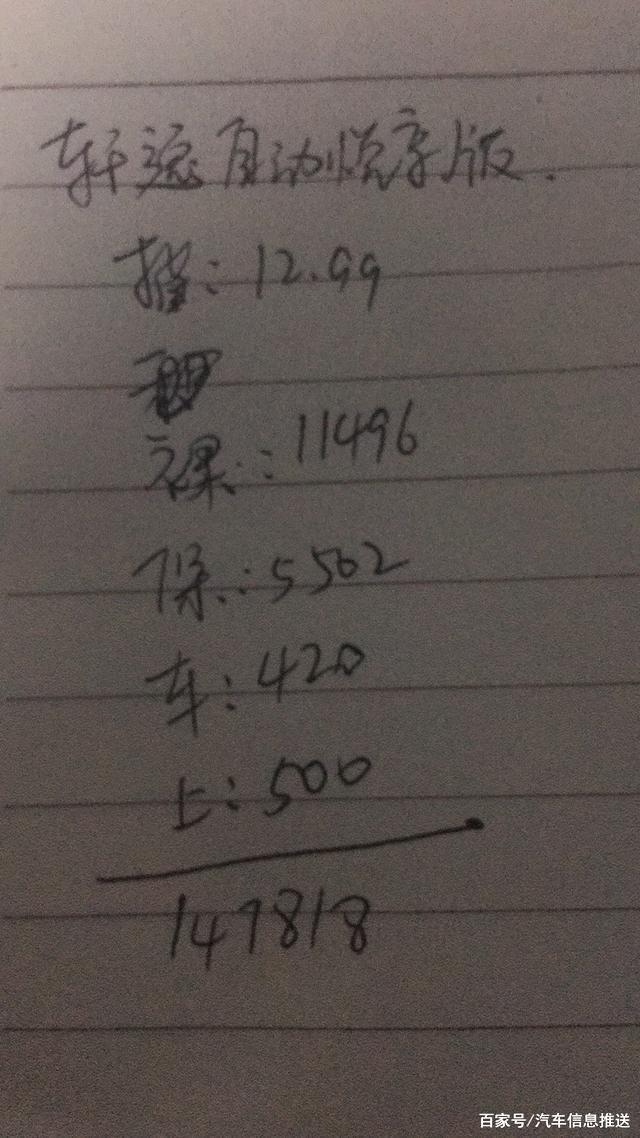 轩逸自动悦享版.
指: 12.99
裸: 11496
保: 5502
车: 420
上: 500
147818
百家号/汽车信息推送